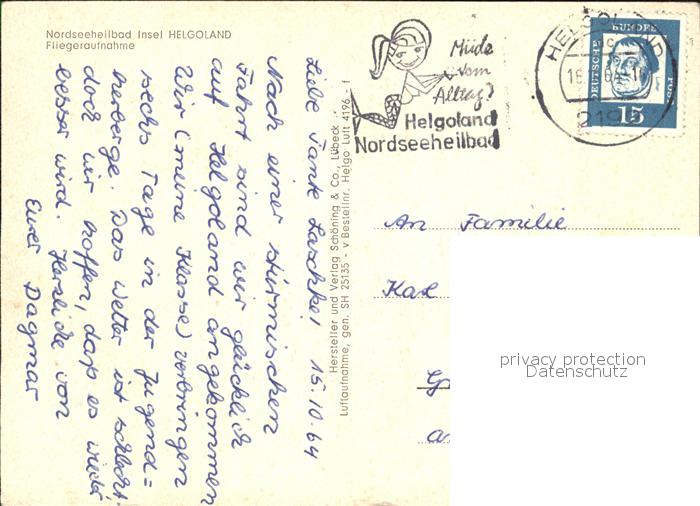 Nordseeheilbad Insel HELGOLAND
Fliegeraufnahme
Müde
vom
Alltag?
Helgoland
Nordseeheilbad
HELGOLAND
c
64
219
DEUTSCHE
BUNDES
POST
15
Hersteller und Verlag Schöning & Co., Lübeck
Luftaufnahme, gen. SH 25135 - v Bestellnr. Helgo Luft 4196 - f
15.10.64
Liebe Tante
Nach einer stürmischen
Fahrt sind wir glücklich
auf Helgoland angekommen
Wir (meine Klasse) verbringen
sechs Tage in der Jugend=
herberge. Das Wetter ist schlecht,
doch wir hoffen, daß es wieder
besser wird. Herzliche von
Eurer Dagmar
An Familie
Karl
privacy protection
Datenschutz